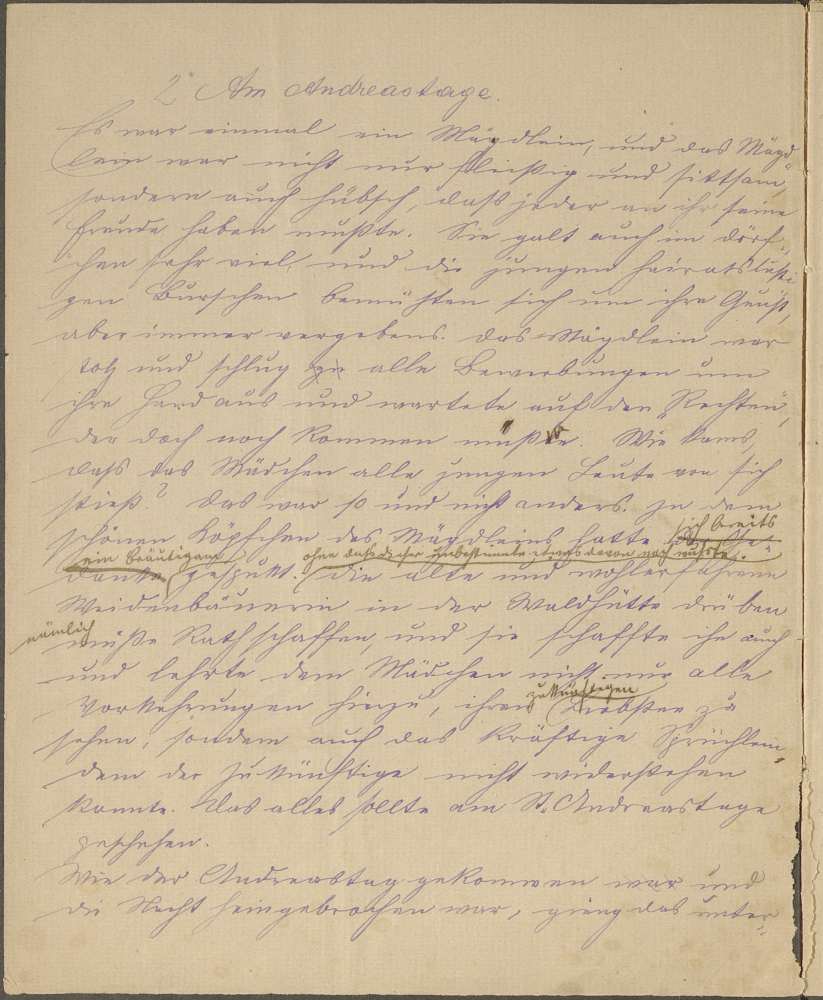 2. Am Andreastage.
Es war einmal ein Mägdlein, und das Mägd-
lein war nicht nur fleißig und sittsam,
sondern auch hübsch, daß jeder an ihr seine
Freude haben mußte. Sie galt auch im Dörf-
chen sehr viel, und die jungen heiratslusti-
gen Burschen bemühten sich um ihre Gunst,
aber immer vergebens. Das Mägdlein war
stolz und schlug alle Bewerbungen um
ihre Hand aus und wartete auf den "Rechten",
der doch noch kommen müßte. Wie kams,
daß das Mädchen alle jungen Leute von sich
stieß? Das war so und nicht anders. In dem
schönen Köpfchen des Mägdleins hatte sich bereits
ein Bräutigam ohne daß dieser Unbestimmte etwas davon noch wußte.
gespukt. Die alte und wohlerfahrene
Weidenbäuerin in der Waldhütte drüben
nämlich
mußte Rath schaffen, und sie schaffte ihn auch
und lehrte dem Mädchen nicht nur alle
zukünftigen
Vorkehrungen hinzu, ihren Liebsten zu
sehen, sondern auch das kräftige Sprüchlein,
dem der Zukünftige nicht widerstehen
konnte. Das alles sollte am St. Andreastage
geschehen.
Wie der Andreastag gekommen war und
die Nacht hereingebrochen war, gieng das unter-